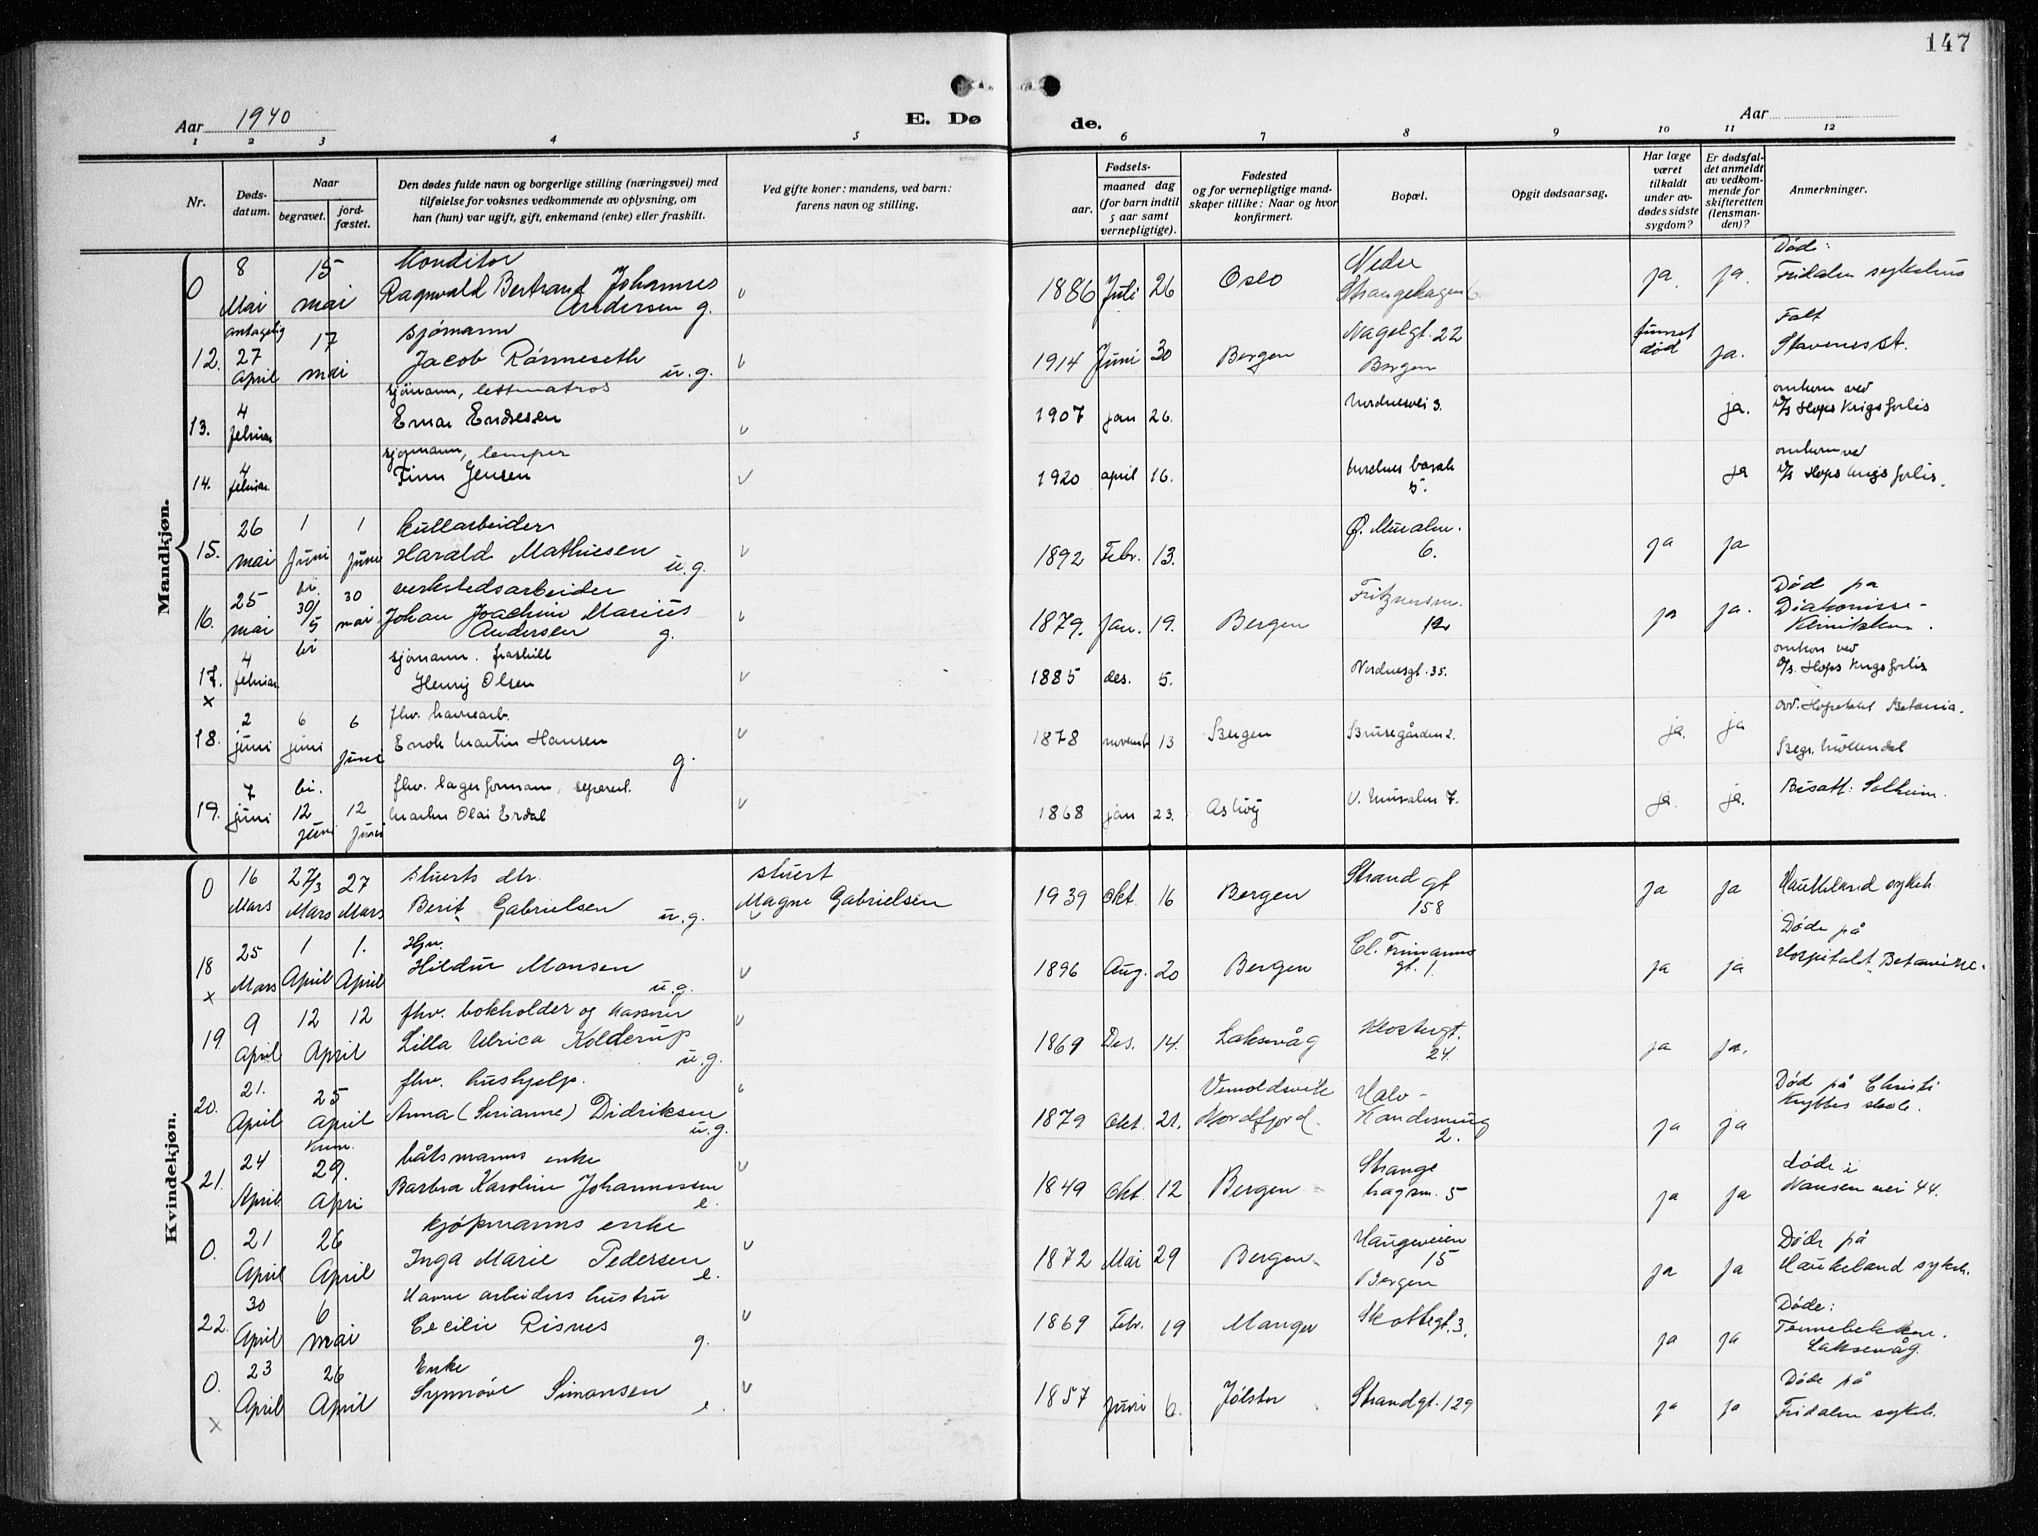 147
Aar 1940
E. Døde.
Aar
1 2 3 4 5 6 7 8 9 10 11 12
Nr.
Dødsdatum.
Naar
begravet.
jordfæstet.
Den dødes fulde navn og borgerlige stilling (næringsvei) med
tilføielse for voksnes vedkommende av oplysning, om
han (hun) var ugift, gift, enkemand (enke) eller fraskilt.
Ved gifte koner: mandens, ved barn:
farens navn og stilling.
Fødsels-
aar.
maaned dag
(for barn indtil
5 aar samt
vernepligtige).
Fødested
og for vernepligtige mand-
skaper tillike: Naar og hvor
konfirmert.
Bopæl.
Opgit dødsaarsag.
Har læge
været
tilkaldt
under av-
dødes sidste
sygdom?
Er dødsfal-
det anmeldt
av vedkom-
mende for
skifteretten
(lensman-
den)?
Anmerkninger.
Mandkjøn.
0 8 Mai 15 mai Konditor
Ragnvald Bertrand Johannes
Andersen g. 1886 Juli 26 Oslo Nedre
Strangehagen ja. ja. Døde:
Fridalen sykehus
12. antagelig 27 April 17 mai sjömann
Jacob Rönneseth u.g. 1914 Juni 30 Bergen Nagelgt. 22
Bergen funnet død ja. Falt
Stavenes st.
13. 4 februar sjömann, lettmatros
Einar Endresen 1907 jan 26. Nordnesvei 3. ja. omkom ved
D/S Hops Krigsforlis
14. 4 februar sjömann, lemper
Finn Jensen 1920 april 16. 5. ja omkom ved
D/S Hops krigsforlis.
15. 26 mai 1 Juni 1 Juni kullarbeider
Harald Mathiesen u.g. 1892 Febr. 13. Ø. Muralm.
6. ja ja
16. 25 mai bis. 30/5 30 mai verkstedsarbeider
Johan Joachim Marius
Andersen g. 1879. Jan. 19. Bergen Fritznersm.
12 ja ja. Död på
Diakonisse-
17. 4 februar sjömann. fraskilt
Henry Olsen 1885 des. 5. Nordnesgt. 35. omkom ved
D/s. Hops krigsforlis
x
18. 2 juni 6 juni 6 Juni fhv. havnearb.
Enok Martin Hansen g. 1878 novemb 13 Bergen Brusegården 2. ja. ja Hospitalet Betania.
Begr. Möllendal
19. 7 juni bis. 12 juni 12 Juni fhv. lagerformann, separert.
Martin Olai Erdal 1868 jan 23. Askvoj V. Muralm 7. ja. ja. Bisatt: Solheim.
Kvindekjøn.
0 16 Mars 27/3 Mars 27 Mars stuerts dtr.
Berit Gabrielsen u.g. stuert
Magne Gabrielsen 1939 Okt. 16 Bergen Strandgt
158 ja ja Haukeland sykeh.
18 x 25 Mars 1 April 1. April Hjv.
Hildur Monsen u.g. 1896 Aug. 20 Bergen Cl. Frimanns
gt. 1. ja ja Døde på
Hospitalet Betanien.
19. 9 April 12 12 April fhv. bokholder og kasserer
Lilla Ulrica Kolderup u.g. 1869 Des. 14. Laksevåg Klostergt.
24. ja ja.
20. 21. April 25 April fhv. hushjelp.
Anna (Serianne) Didriksen u.g. 1879 Okt. 21. Vemoldsvik
Nordfjord. Halv-
Kandesmug
2. ja ja Död på Christi
Krybbes skole.
21. 24 April Krem. 29. April båtsmanns enke
Barbra Karoline Johannessen e. 1849 Okt. 12 Bergen Strange
hagm. 5 ja ja døde i
Nansen vei 44.
0. 21 April 26 April kjøpmanns enke
Inga Marie Pedersen e. 1872 Mai 29 Bergen. Haugeveien
15
Bergen ja ja Døde på
Haukeland sykeh.
22. 30 April 6 mai Havnearbeiders hustru
Cecilie Risnes g. 1869 Febr. 19 Manger Skottegt. 3. ja ja Døde:
Tennebekken.
Laksevåg.
0. x 23 April 26 April Enke
Synnøve Simonsen e. 1857 Juni 6. Jølster Strandgt. 129 ja ja Døde på
Fridalen sykeh.